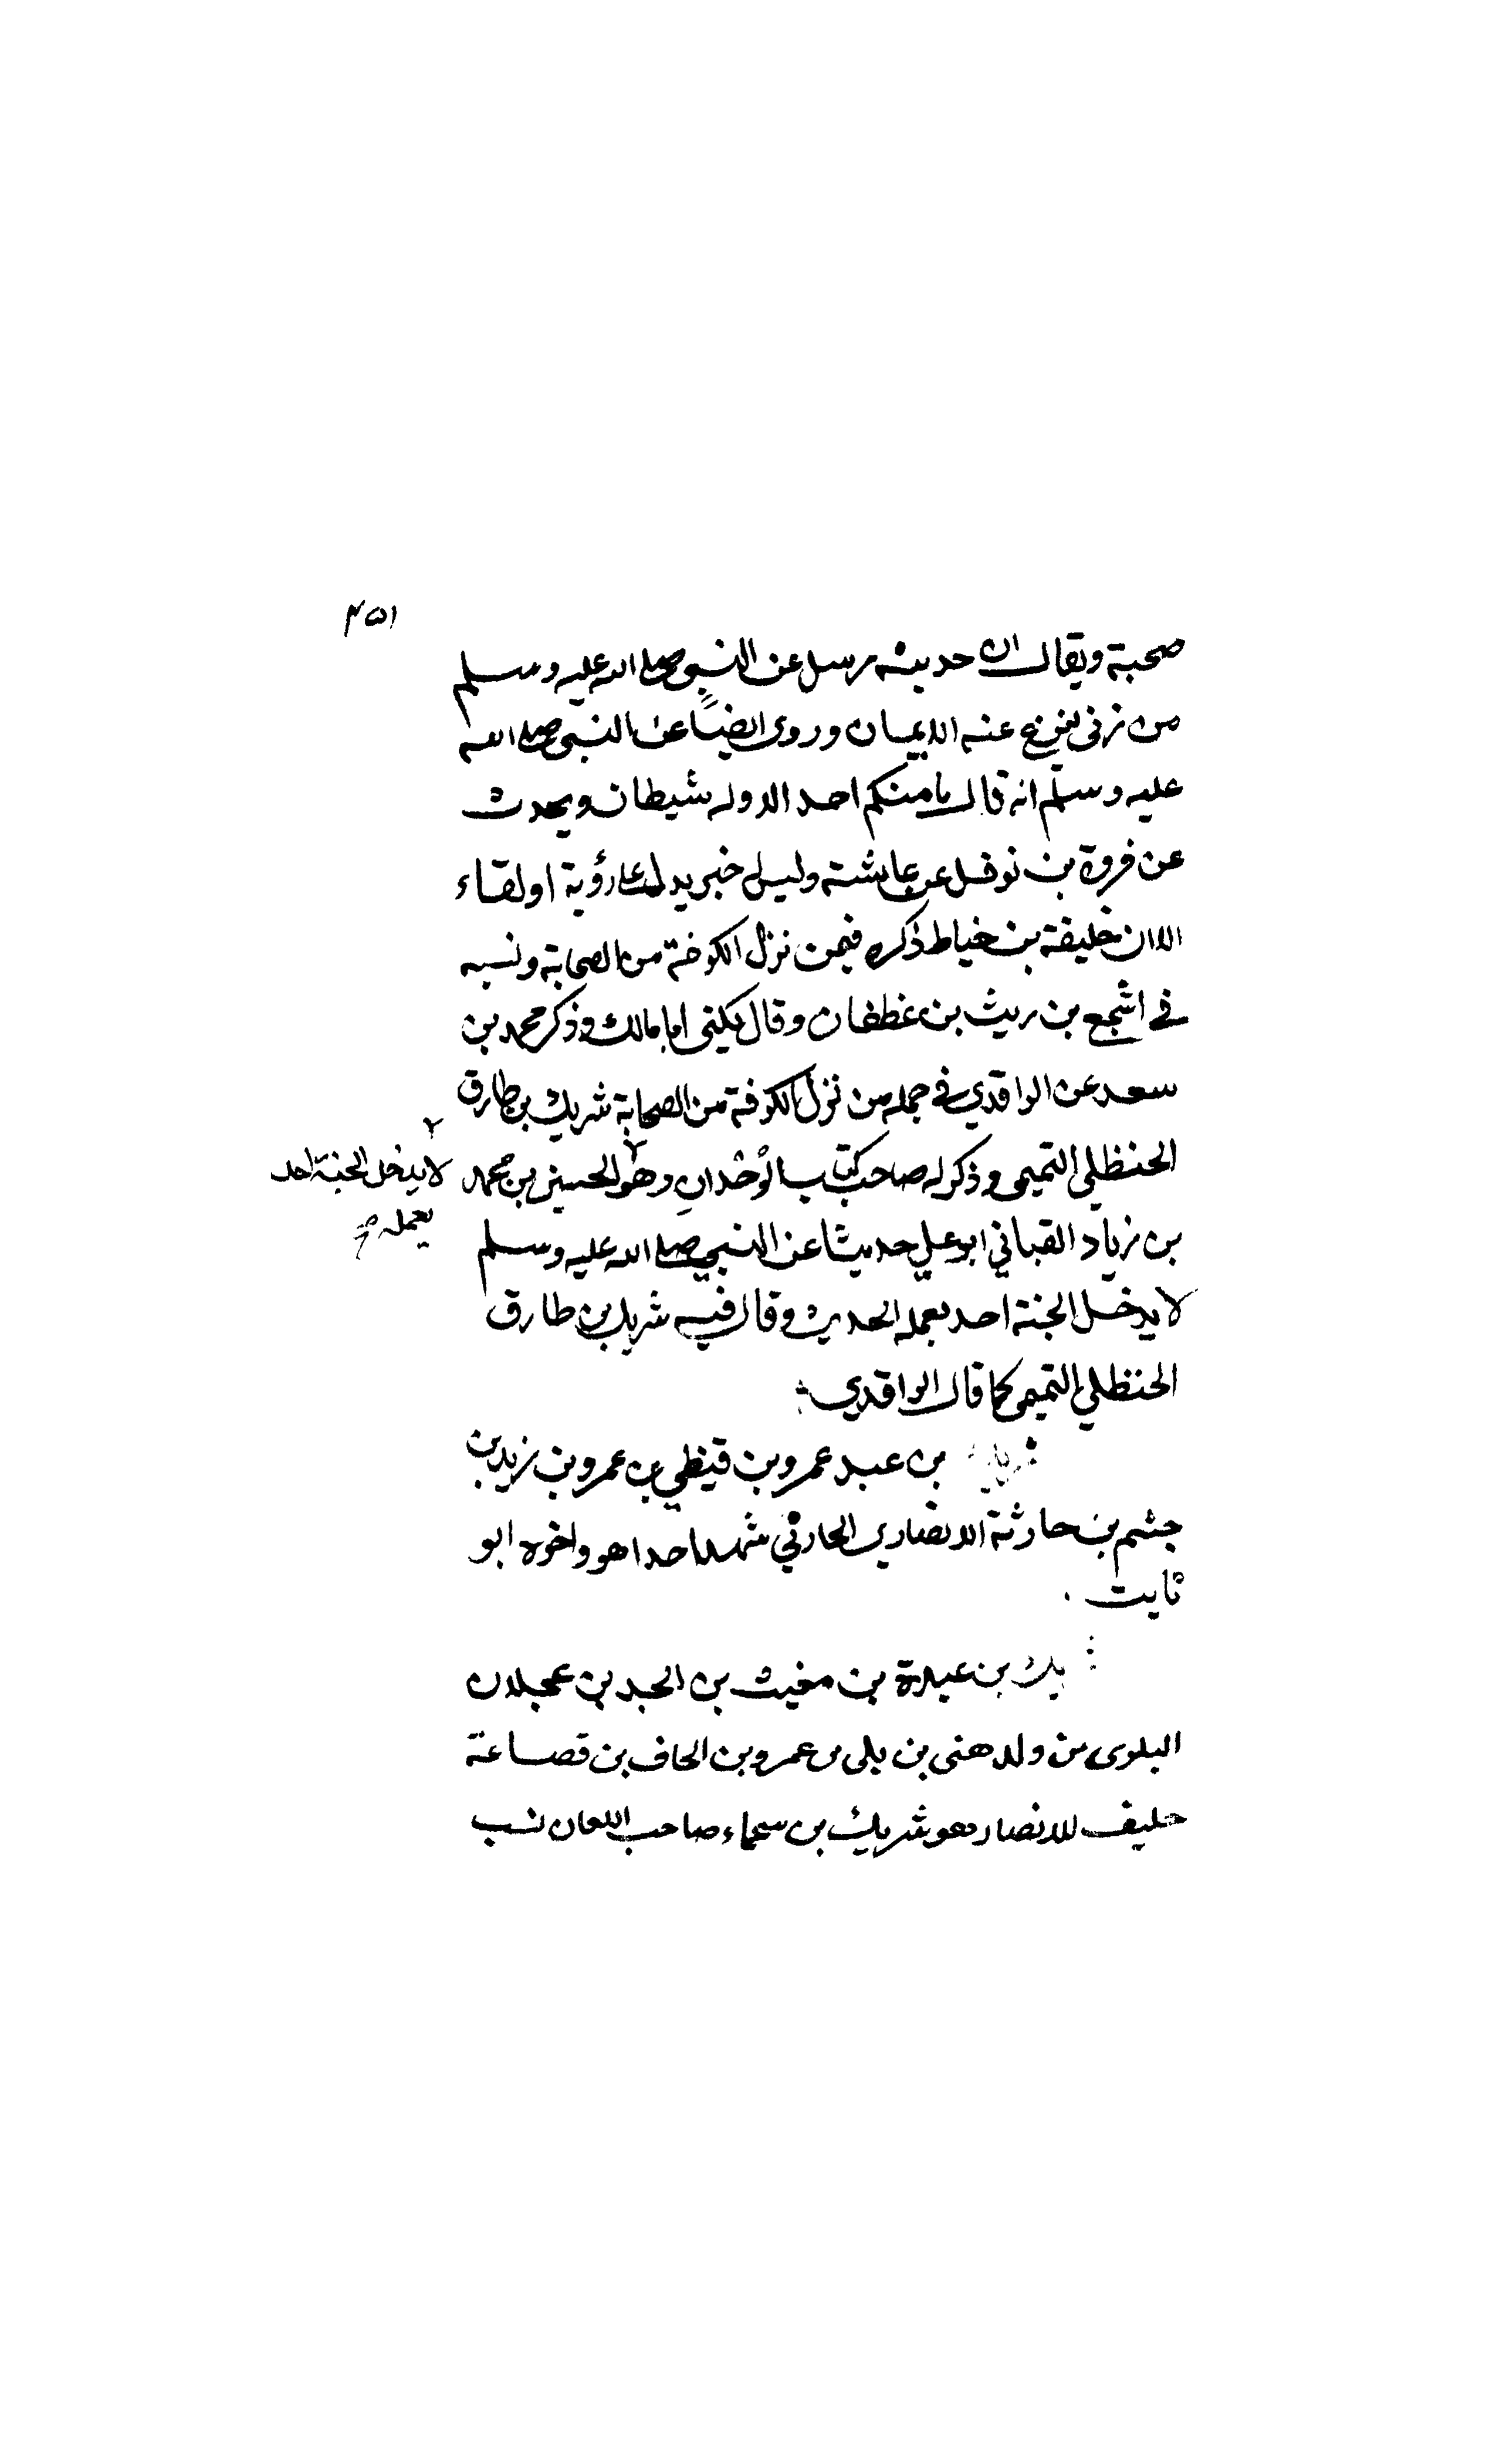 ٤٥١
صحبة ويقال ان حديثه مرسل عن النبي صلى الله عليه وسلم
من زنى نزع عنه الايمان وروى ايضًا عن النبي صلى الله
عليه وسلم انه قال ما منكم احد الا وله شيطان ويحدث
عن فروة بن نوفل عن عايشة وليس له خبر يدل على رؤية او لقاء
الا ان خليفة بن خياط ذكره فيمن نزل الكوفة من الصحابة ونسبه
في اشجع بن ريث بن غطفان وقال يكنى ابا مالك وذكر محمد بن
سعد عن الواقدي في جمله من نزل الكوفة من الصحابة شريك بن طارق
الحنظلي التميمي وذكر له صاحب كتاب الوُحْدانِ وهو الحسين بن محمد
لا يدخل الجنة احد
بعمله صح
بن زياد القباني ابو علي حديثا عن النبي صلى الله عليه وسلم
لا يدخل الجنة احد بعمله الحديث وقال فيه شريك بن طارق
الحنظلي التميمي كما قال الواقدي
شريك بن عبد عمرو بن قيظي بن عمرو بن زيد بن
جشم بن حارثة الانصاري الحارثي شهد احدا هو واخوه ابو
ثابت .
يك بن عبدة بن مغيث بن الجد بن عجلان
البلوى من ولد هني بن بلى بن عمرو بن الحاف بن قضاعة
حليف للانصار وهو شريك بن سحماء صاحب اللعان نسب